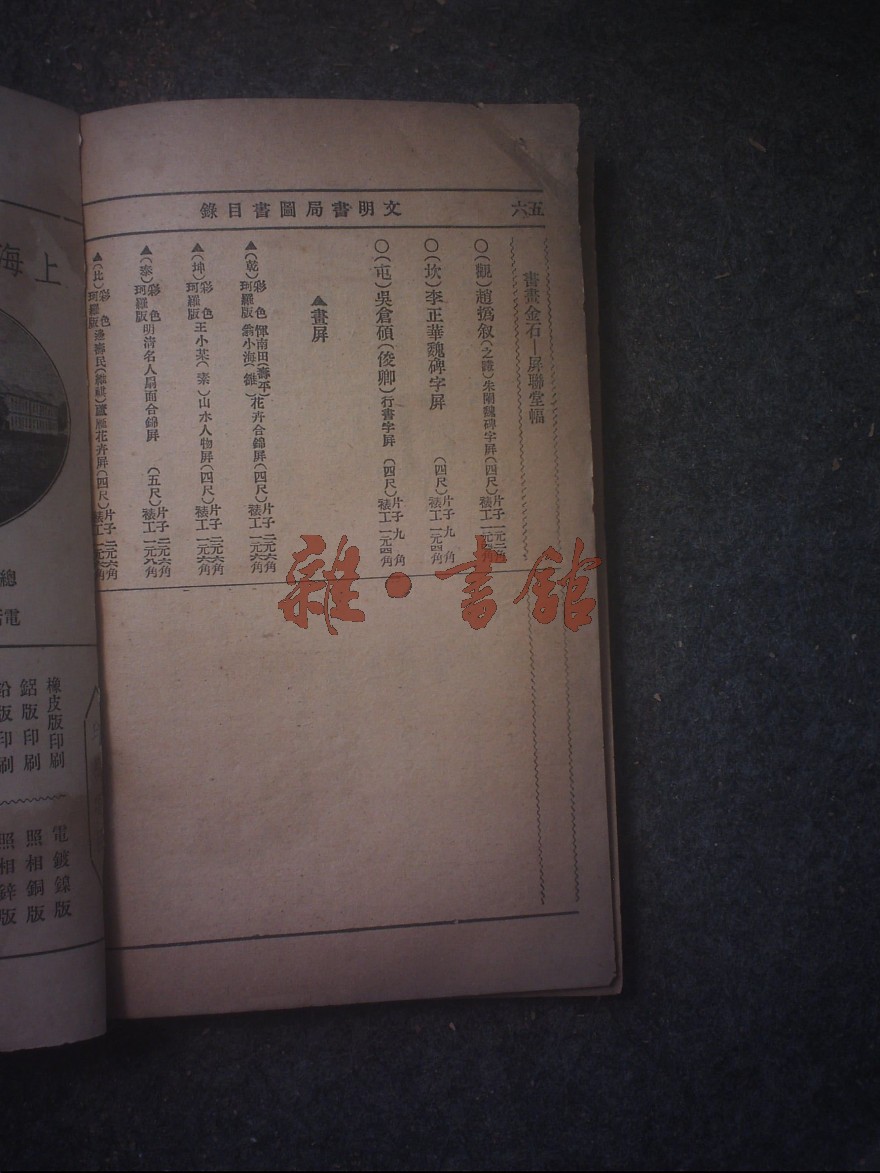 文明書局圖書目錄
五六
書畫金石—屏聯堂幅
○(觀)趙撝叙(之謙)朱闌魏碑字屏(四尺)片子一元二角 裱工一元四角
○(坎)李正華魏碑字屏(四尺)片子九角 裱工一元四角
○(屯)吳倉碩(俊卿)行書字屏(四尺)片子九角 裱工一元四角
▲畫屏
▲(乾)彩色珂羅版 惲南田(壽平)翁小海(雒)花卉合錦屏(四尺)片子二元六角 裱工一元六角
▲(坤)彩色珂羅版 王小某(素)山水人物屏(四尺)片子二元六角 裱工一元六角
▲(泰)彩色珂羅版 明清名人扇面合錦屏(五尺)片子二元六角 裱工一元八角
▲(比)彩色珂羅版 邊壽民(維祺)蘆雁花卉屏(四尺)片子二元六角 裱工一元六角
上海
總
電
橡皮版印刷
鋁版印刷
鉛版印刷
電鍍鎳版
照相銅版
照相鋅版
雜·書館